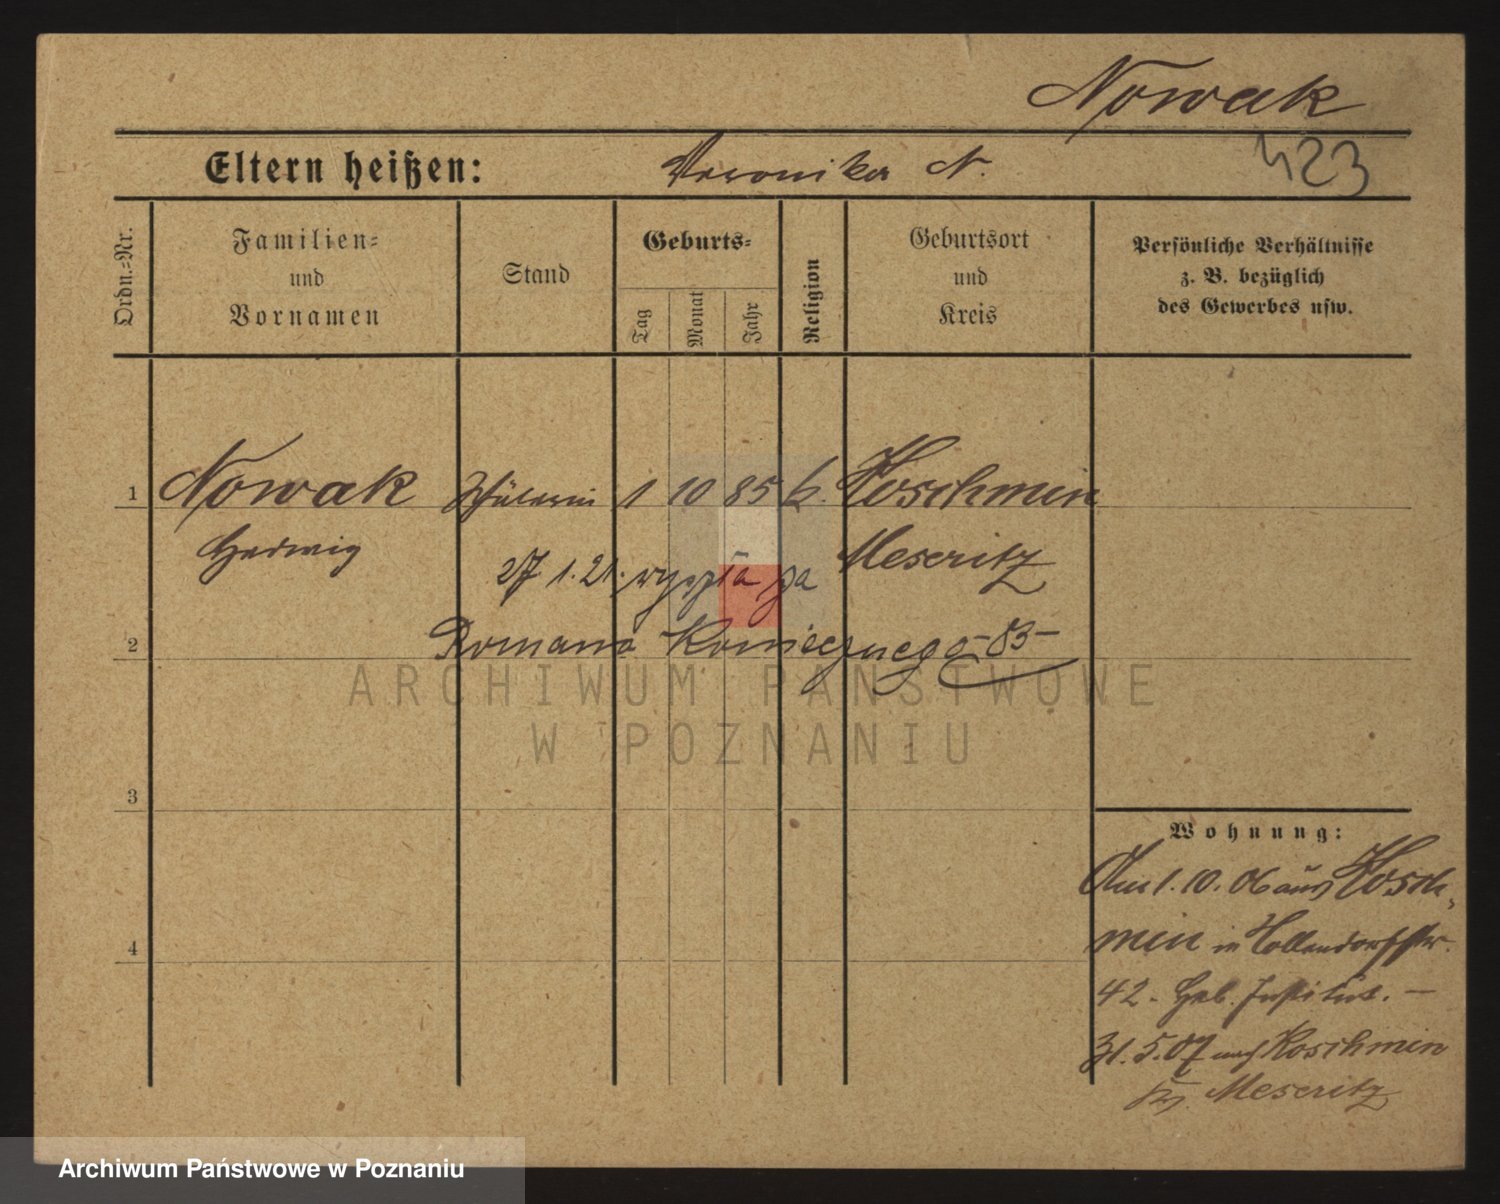 Nowak
Eltern heißen: Veronika N.
423
Ordn.=Nr.
Familien=
und
Vornamen
Stand
Geburts=
Tag
Monat
Jahr
Religion
Geburtsort
und
Kreis
Persönliche Verhältnisse
z. B. bezüglich
des Gewerbes usw.
1 Nowak Schülerin 1 10 85 k. Koschmin
Hedwig
Meseritz
27 1. 21. wyszła za
2 Romana Koniecznego -83-
ARCHIWUM PAŃSTWOWE
W POZNANIU
3
Wohnung:
Am 1. 10. 06 aus Kosch
min in
4
42. Geb. Institut. —
31. 5. 07 nach Koschmin
Meseritz
Archiwum Państwowe w Poznaniu